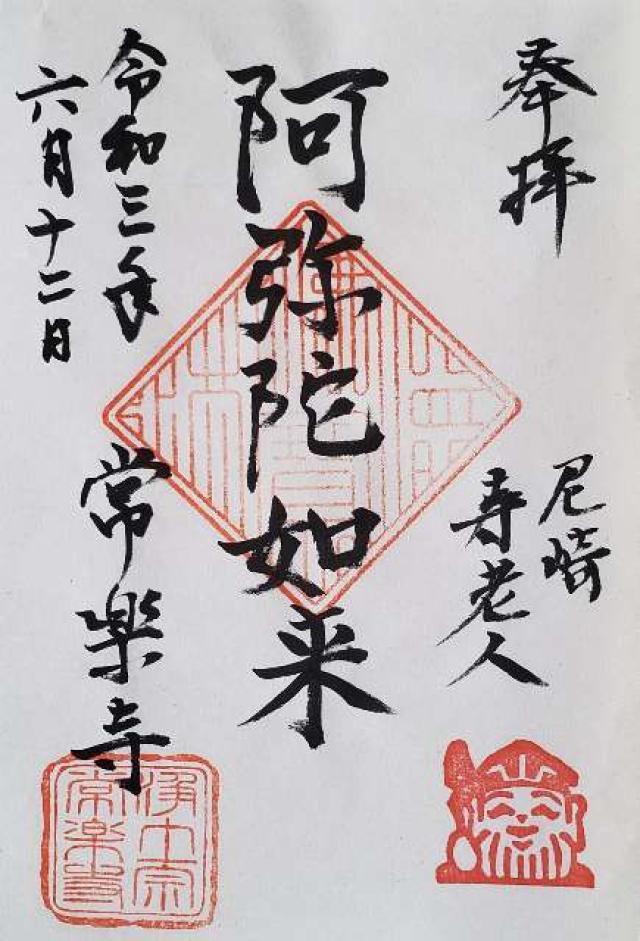 奉拝
尼崎
寿老人
阿弥陀如来
令和三年
六月十二日
常楽寺
浄土宗
常楽寺